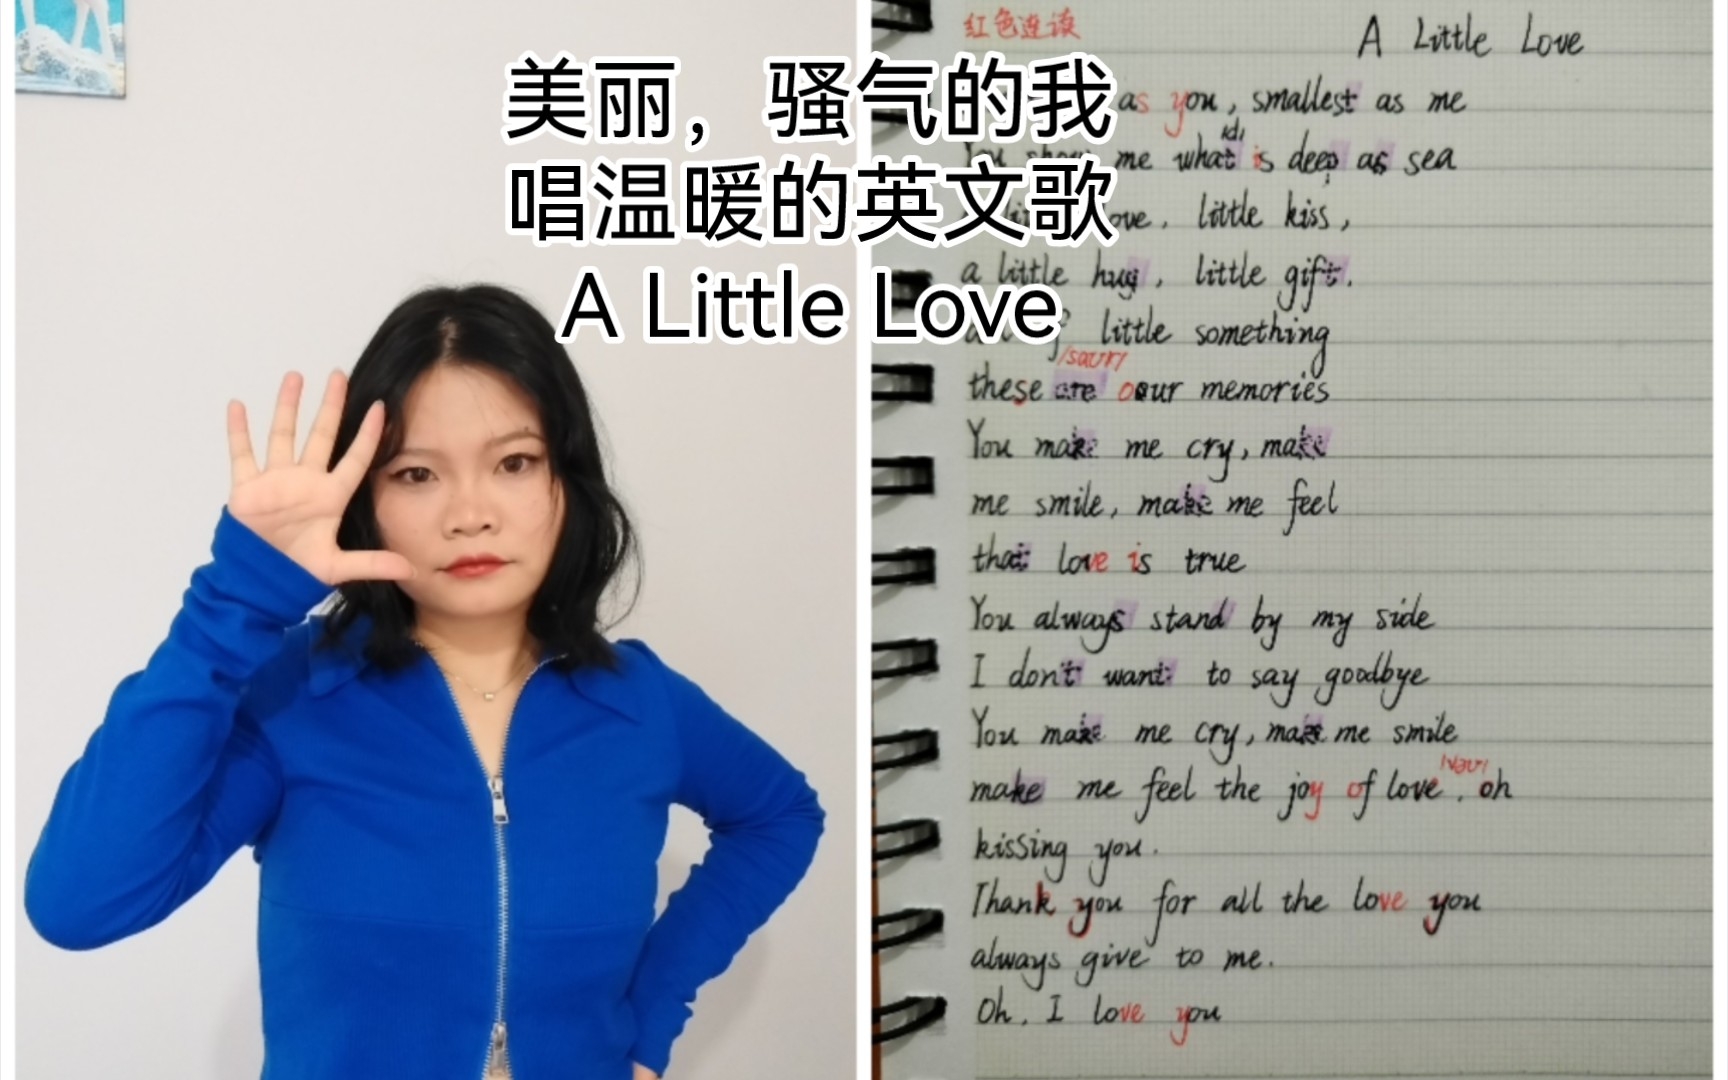 美丽，骚气的我
唱温暖的英文歌
A Little Love
红色连读
A Little Love
as you, smallest as me
/d/
You show me what is deep as sea
love, little kiss,
a little hug, little gift.
little something
/saʊr/
these are our memories
You make me cry, make
me smile, make me feel
that love is true
You always stand by my side
I don't want to say goodbye
You make me cry, make me smile
make me feel the joy of love, oh
kissing you.
Thank you for all the love you
always give to me.
Oh, I love you